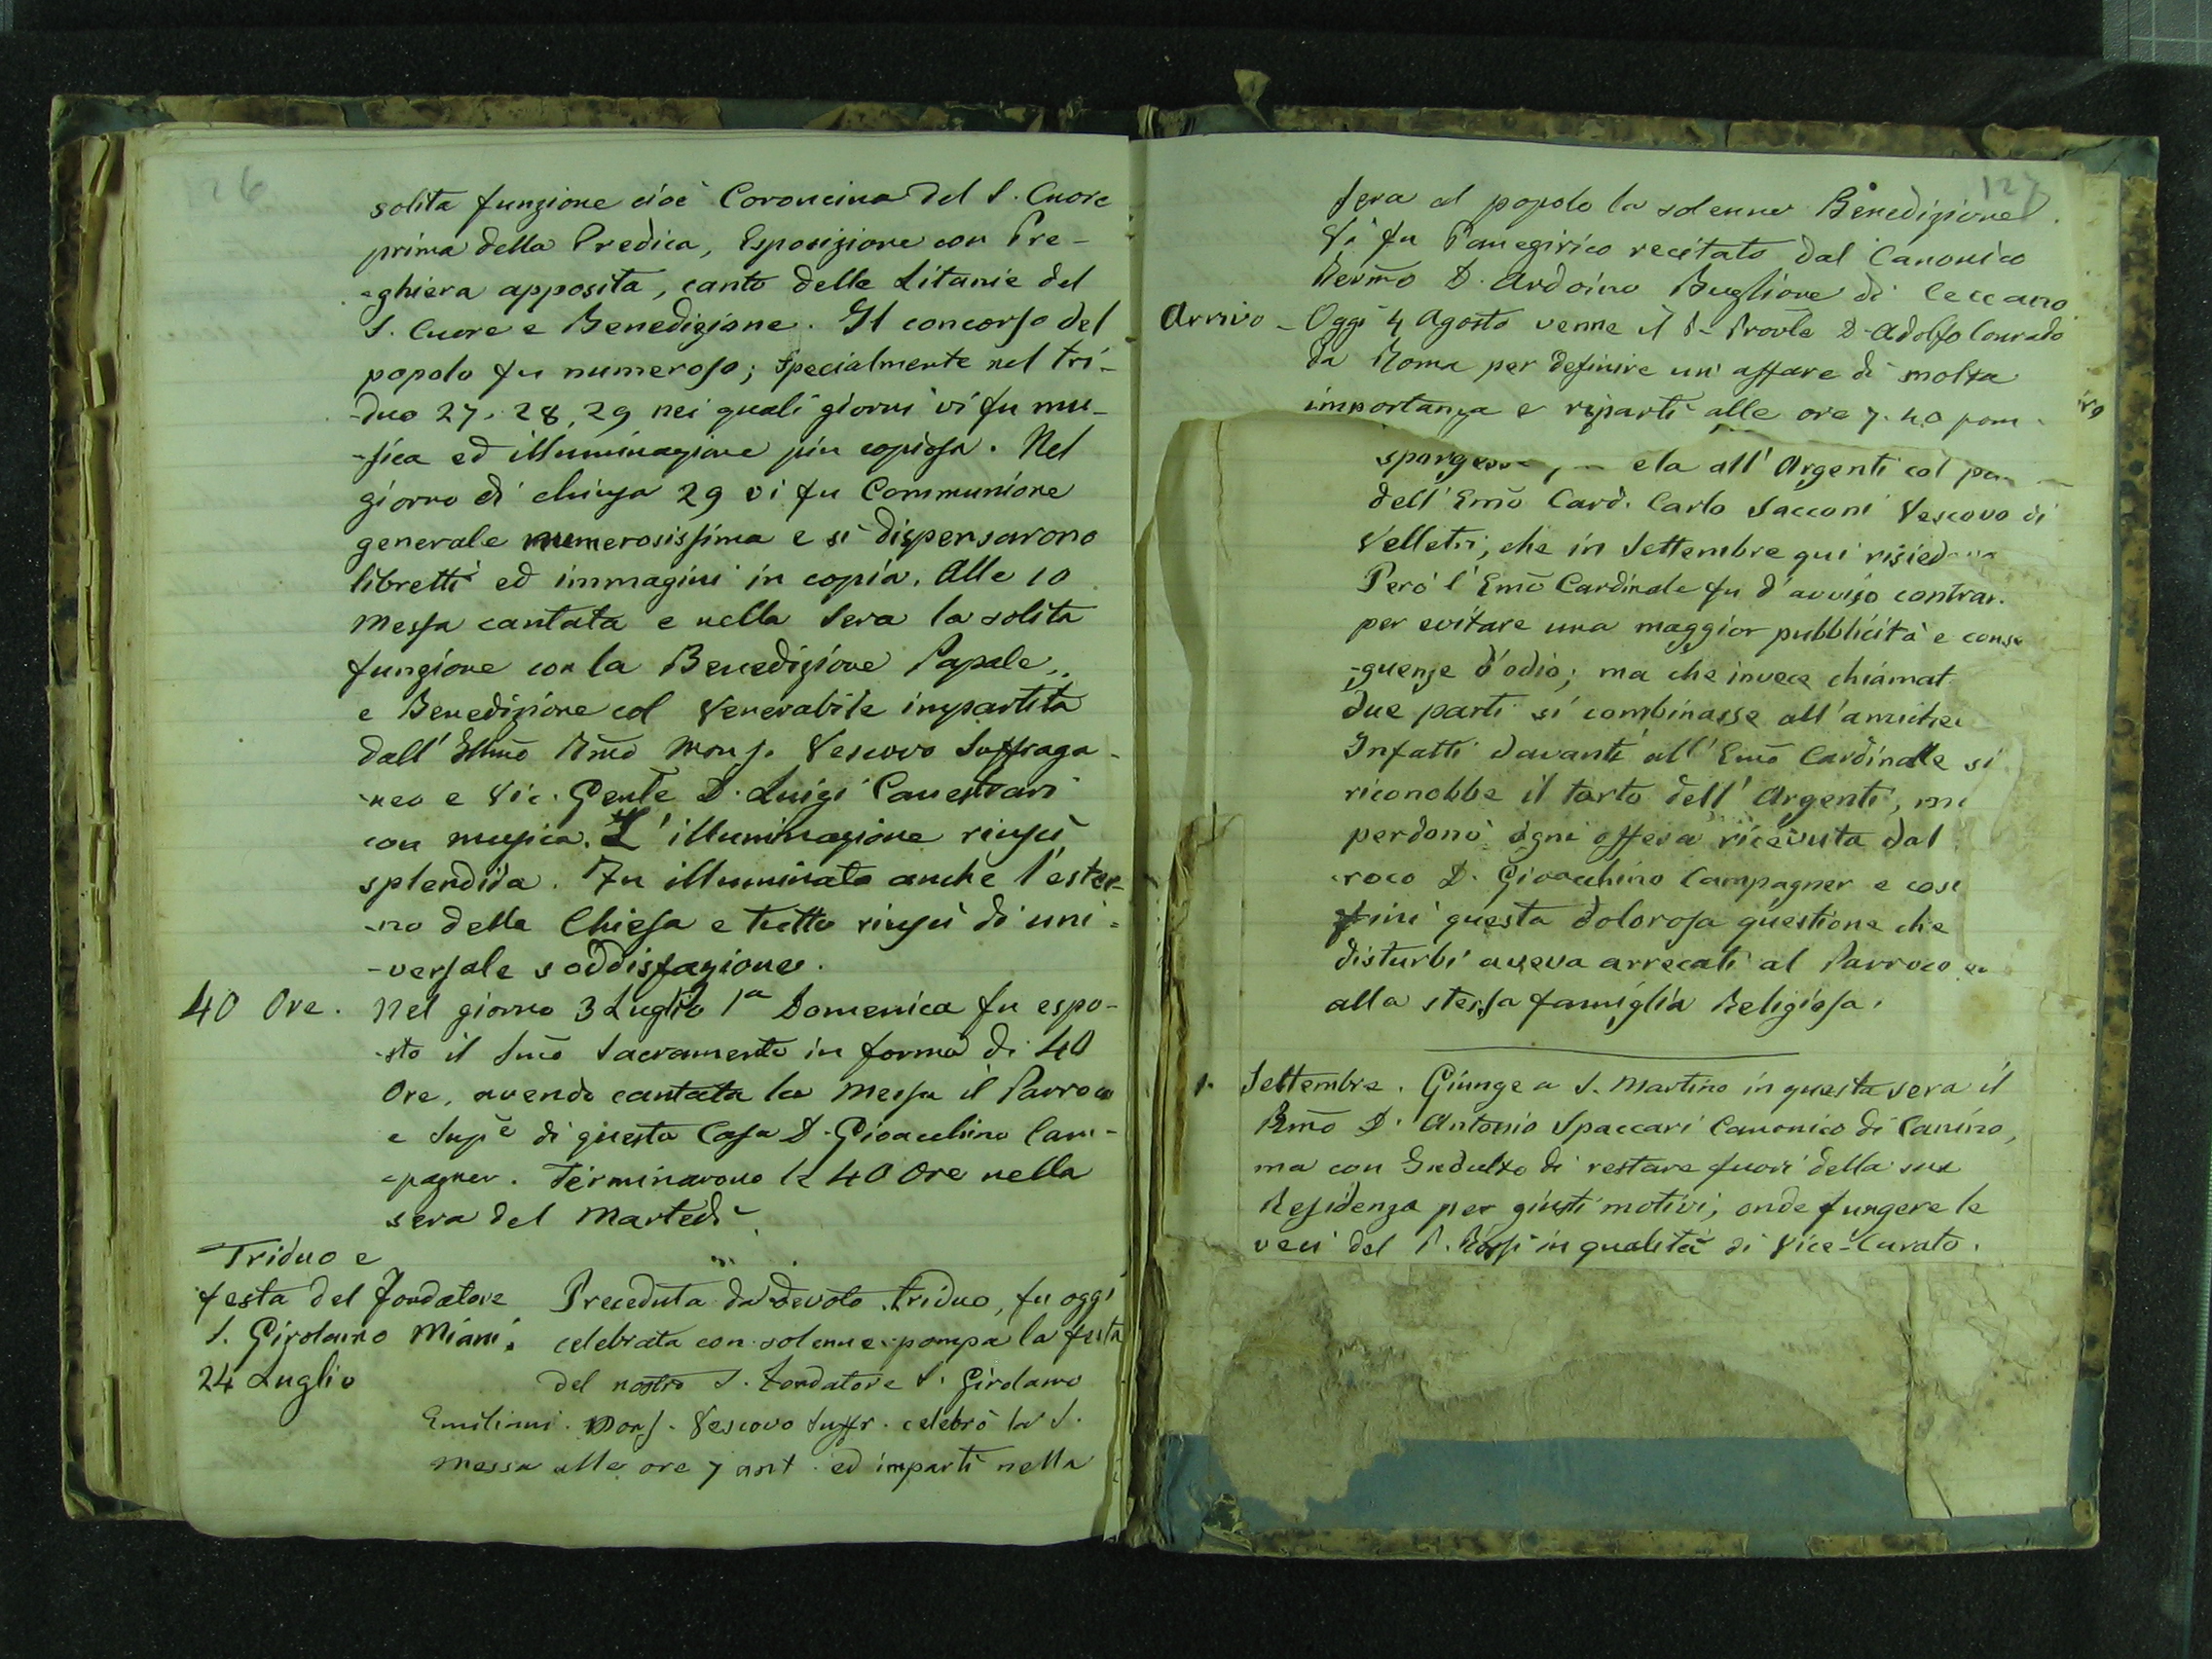 126
solita funzione cioè Coroncina del S. Cuore
prima della Predica, Esposizione con Pre-
-ghiera apposita, canto delle Litanie del
S. Cuore e Benedizione. Il concorso del
popolo fu numeroso; specialmente nel tri-
-duo 27. 28, 29 nei quali giorni vi fu mu-
-sica ed illuminazione più copiosa. Nel
giorno di chiusa 29 vi fu Communione
generale numerosissima e si dispensarono
libretti ed immagini in copia. Alle 10
Messa cantata e nella sera la solita
funzione con la Benedizione Papale
e Benedizione col Venerabile impartita
dall' Illmo Rmo Mons. Vescovo Suffraga-
-neo e Vic. Genle D. Luigi Canestrari
con musica. L'illuminazione riuscì
splendida. Fu illuminato anche l'ester-
-no della Chiesa e tutto riuscì di uni-
-versale soddisfazione.
40 Ore. Nel giorno 3 Luglio 1a Domenica fu espo-
-sto il Smo Sacramento in forma di 40
Ore, avendo cantata la Messa il Parroco
e Supe di questa Casa D. Gioacchino Cam-
-pagner. Terminarono le 40 Ore nella
sera del Martedì
Triduo e
festa del Fondatore
S. Girolamo Miani.
24 Luglio
Preceduta da devoto triduo, fu oggi
celebrata con solenne pompa la festa
del nostro S. Fondatore S. Girolamo
Emiliani. Mons. Vescovo Suffr. celebrò la S.
Messa alle ore 7 ant. ed impartì nella
127
sera al popolo la solenne Benedizione.
Vi fu Panegirico recitato dal Canonico
Revmo D. Ardoino Buglione di Ceccano
Arrivo - Oggi 4 Agosto venne il P. Provle D. Adolfo Conrado
da Roma per definire un' affare di molta
importanza e ripartì alle ore 7.40 pom.
all' Argenti col
dell' Emo Card. Carlo Sacconi Vescovo di
Velletri, che in Settembre qui
Però l' Emo Cardinale fu d' avviso
per evitare una maggior pubblicità e conse
-guenze d'odio; ma che invece chiamat
due parti si combinasse
Infatti davanti all' Emo Cardinale si
riconobbe il torto dell' Argenti,
perdonò ogni offesa ricevuta dal
-roco D. Gioacchino Campagner e così
finì questa dolorosa questione che
disturbi aveva arrecati al Parroco
alla stessa famiglia Religiosa.
1. Settembre. Giunge a S. Martino in questa sera il
Rmo D. Antonio Spaccari Canonico di Canino,
ma con Indulto di restare fuori della sua
Residenza per giusti motivi, onde fungere le
veci del P. Rossi in qualità di Vice-Curato.